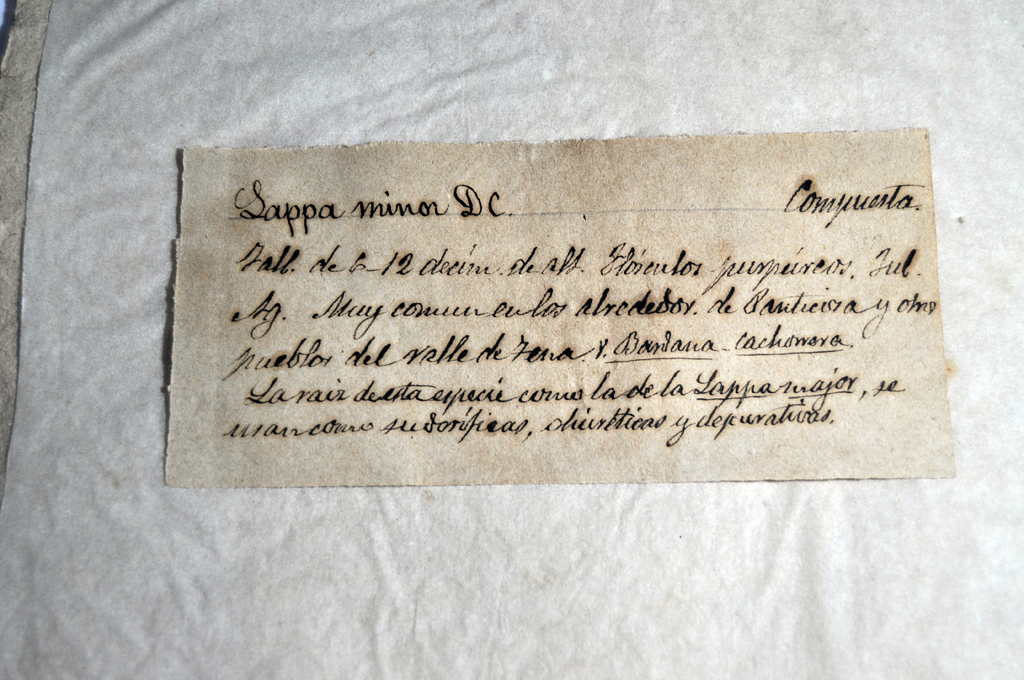 Lappa minor DC. Compuesta.
Tall. de 6-12 decím. de alt. Flósculos purpúreos. Jul.
Ag. Muy comun en los alrededor. de Panticosa y otros
pueblos del valle de Tena. v. Bardana cachorrera.
La raiz de esta especie como la de la Lappa major, se
usan como sudoríficas, diuréticas y depurativas.